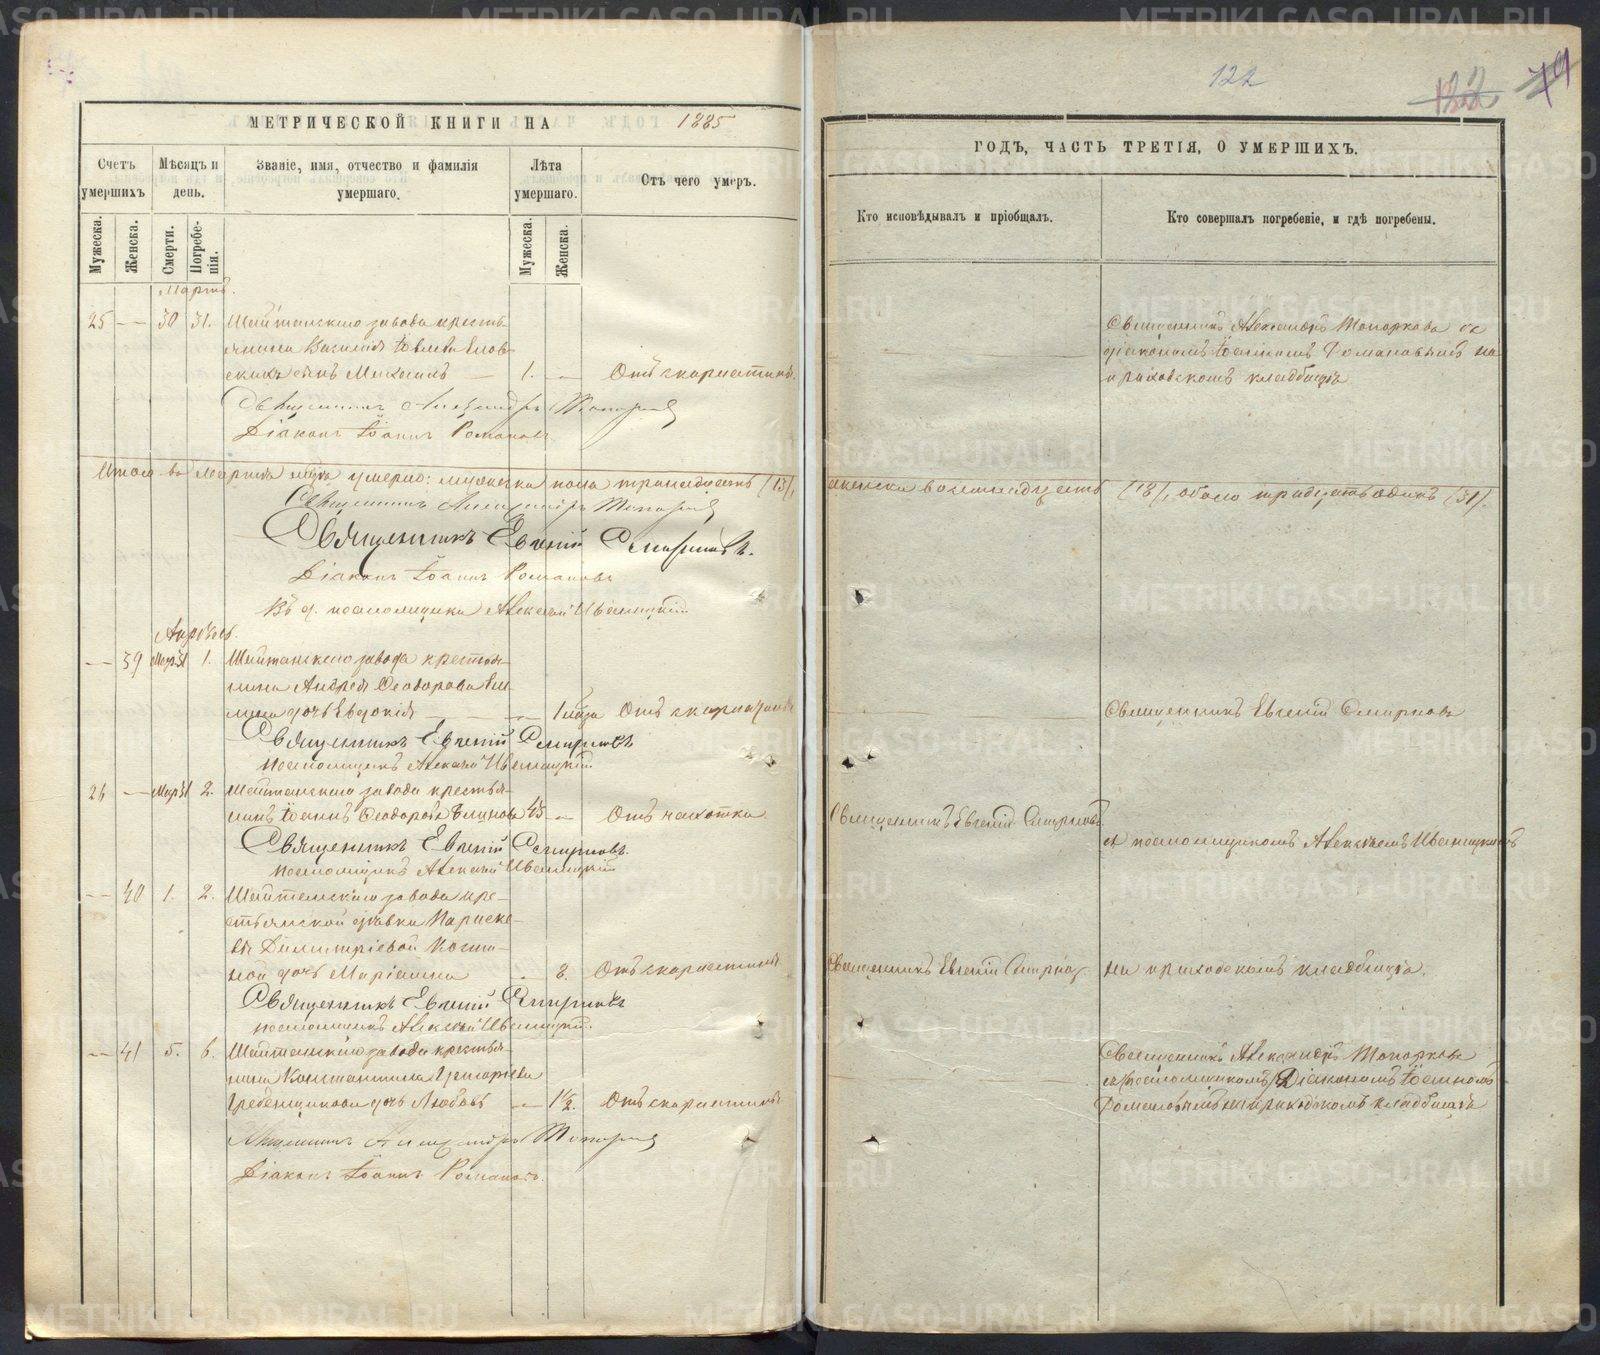 МЕТРИЧЕСКОЙ КНИГИ НА 1885
Счетъ умершихъ
Мѣсяцъ и день.
Званіе, имя, отчество и фамилія умершаго.
Лѣта умершаго.
Отъ чего умеръ.
Мужеска.
Женска.
Смерти.
Погребенія.
Мужеска.
Женска.
Мартъ.
25 — 30 31. Шайтанскаго завода кресть-
янина Василія
сынъ Михаилъ — 1. — Отъ скарлатины.
Священникъ Александръ Топорковъ
Діаконъ Іоаннъ Романовъ
Итого въ Мартѣ умерло: мужеска пола тринадцать (13),
Священникъ Александръ Топорковъ
Священникъ Евгеній Смирновъ.
Діаконъ Іоаннъ Романовъ
В. д. псаломщика Алексѣй Ивановъ
Апрѣль.
— 39 Мар. 31 1. Шайтанскаго завода крестья-
нина Андрея Ѳеодорова
дочь Евдокія — 1 Отъ скарлатины
Священникъ Евгеній Смирновъ
Псаломщикъ Алексѣй
26 — Мар. 31 2. Шайтанскаго завода крестья-
нинъ Іоаннъ Ѳеодоровъ 45 — Отъ чахотки.
Священникъ Евгеній Смирновъ.
Псаломщикъ Алексѣй
— 40 1. 2. Шайтанскаго завода кре-
стьянской дѣвки Параске-
вы Димитріевой
дочь Маріамна — 8. Отъ скарлатины
Священникъ Евгеній Смирновъ
Псаломщикъ Алексѣй
— 41 5. 6. Шайтанскаго завода крестья-
нина Константина Григорьева
Гребенщикова дочь Любовь — 1½. Отъ скарлатины
Священникъ Александръ Топорковъ
Діаконъ Іоаннъ Романовъ.
122
122
79
ГОДЪ, ЧАСТЬ ТРЕТІЯ, О УМЕРШИХЪ.
Кто исповѣдывалъ и пріобщалъ.
Кто совершалъ погребеніе, и гдѣ погребены.
Священникъ Александръ Топорковъ съ
діакономъ Іоанномъ Романовымъ на
приходскомъ кладбищѣ
женска восемнадцать (18), обоего тридцать одинъ (31).
Священникъ Евгеній Смирновъ
Священникъ Евгеній Смирновъ
съ псаломщикомъ Алексѣемъ
Священникъ Евгеній Смирнов
на приходскомъ кладбищѣ.
Священникъ Александръ Топорковъ
съ псаломщикомъ Діакономъ Іоанномъ
Романовымъ на приходскомъ кладбищѣ
METRIKI.GASO-URAL.RU